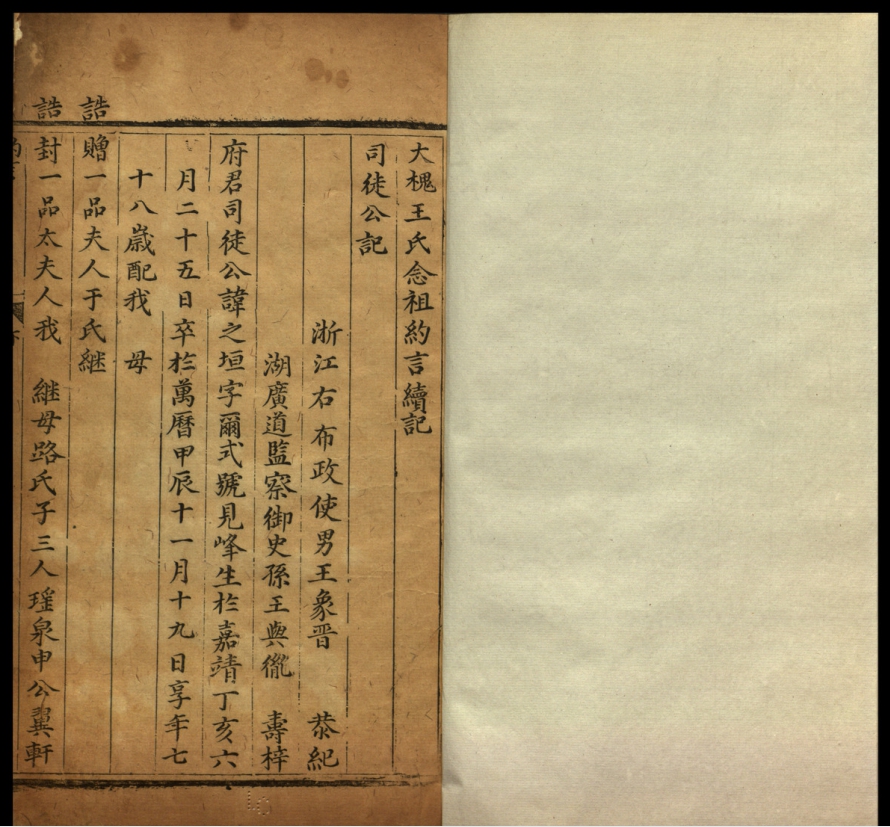 大槐王氏念祖約言續記
司徒公記
浙江右布政使男王象晋 恭紀
湖廣道監察御史孫王與胤 壽梓
府君司徒公諱之垣字爾式號見峰生於嘉靖丁亥六
月二十五日卒於萬曆甲辰十一月十九日享年七
十八歲配我 母
誥贈一品夫人于氏継
誥封一品太夫人我 継母路氏子三人瑶泉申公翼軒